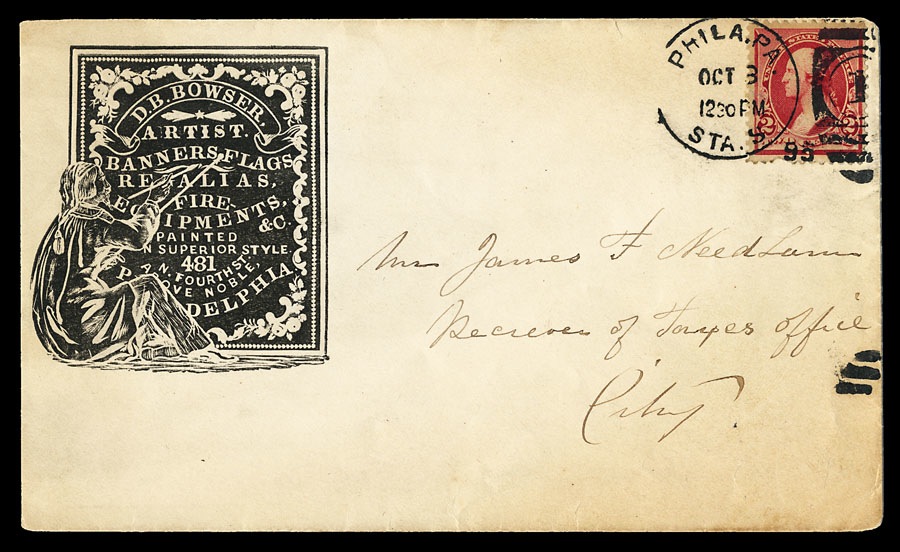 D.B. BOWSER.
ARTIST.
BANNERS, FLAGS
REGALIAS,
FIRE-
EQUIPMENTS,
&C.
PAINTED
IN SUPERIOR STYLE.
481
N. FOURTH ST.
ABOVE NOBLE,
DELPHIA
PHILA, PA.
OCT 3
1230 PM
STA. S
95
Mr James F Needham
Reciever of Taxes office
City.